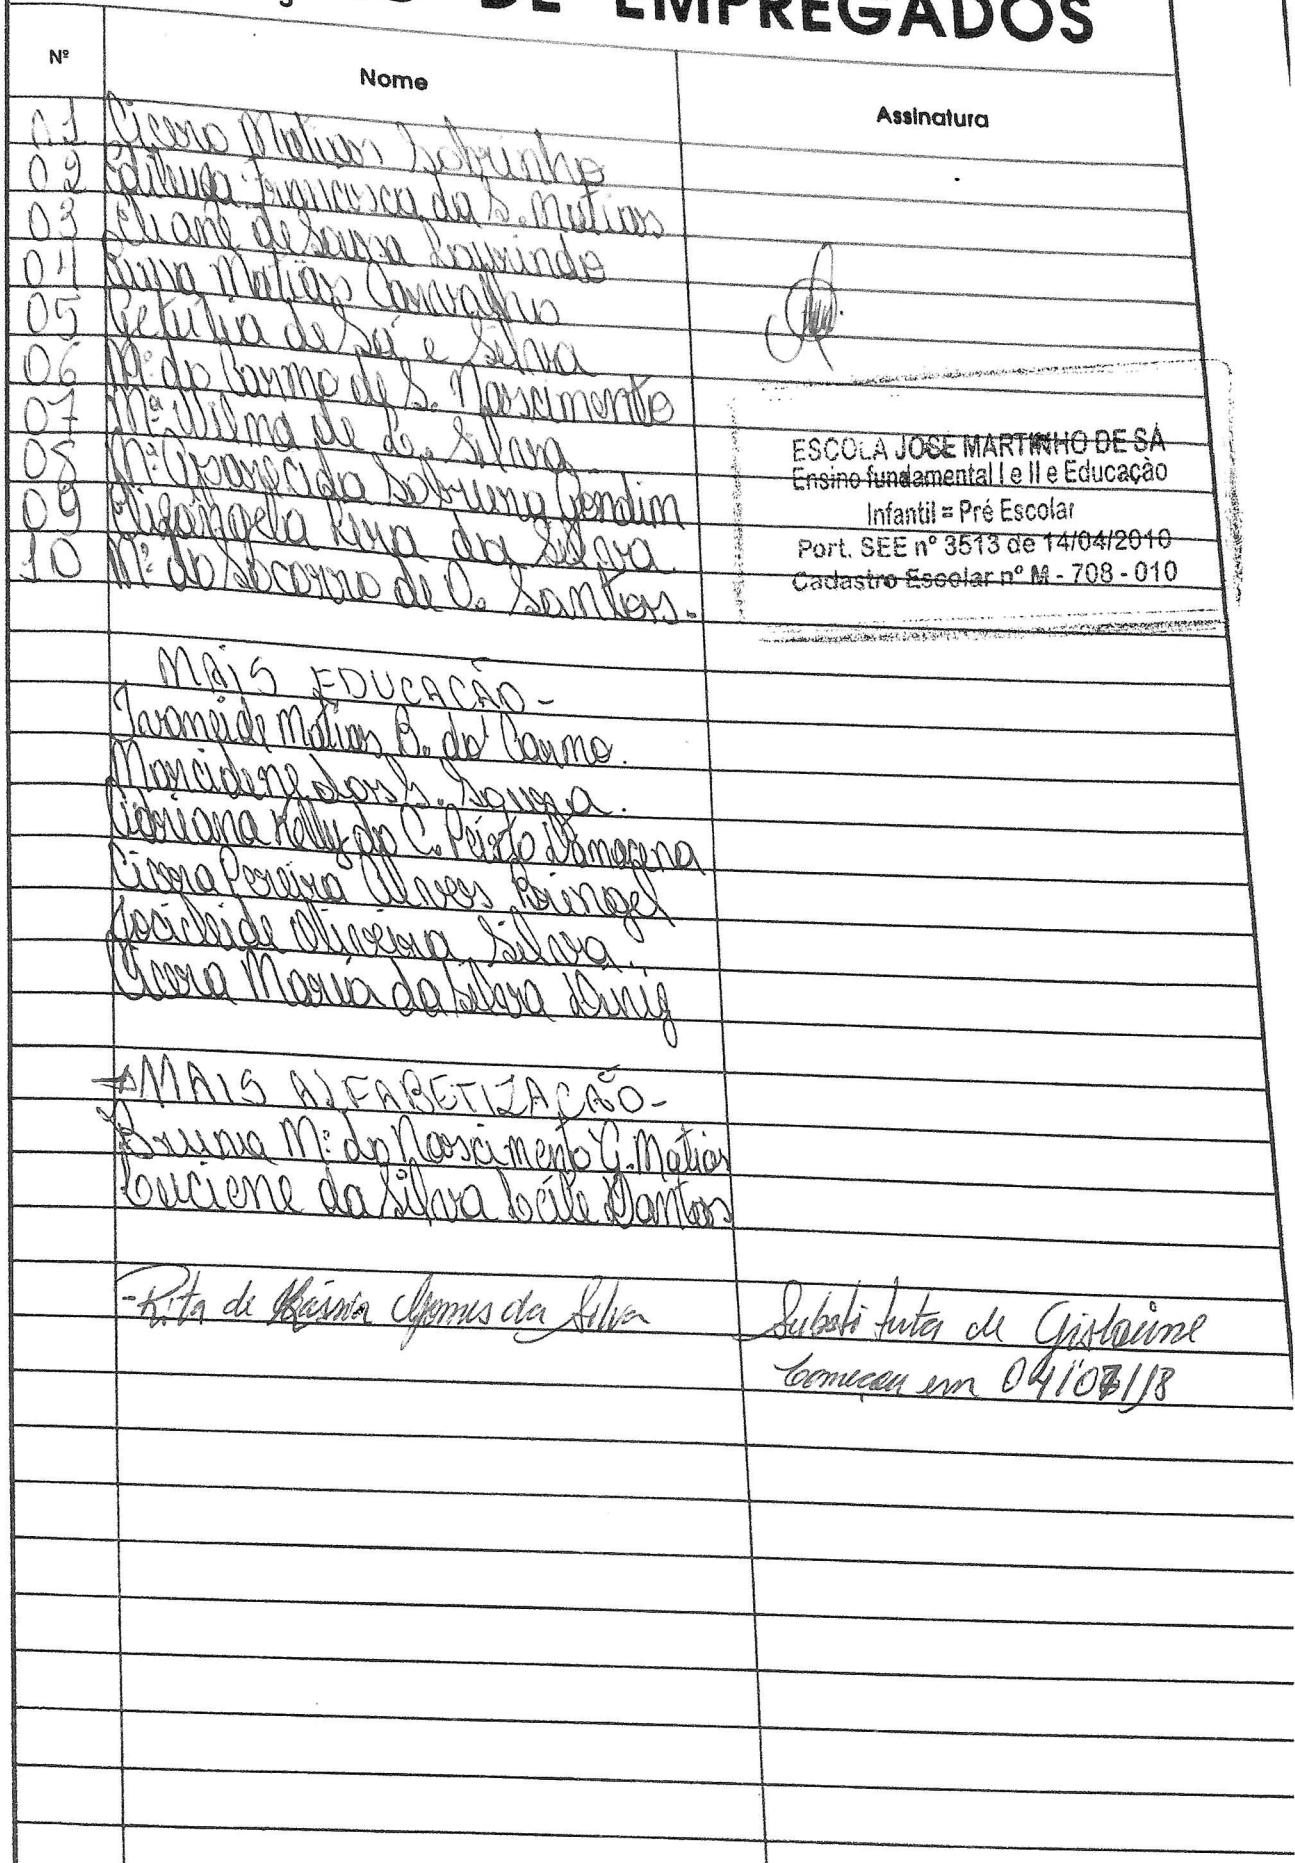 DE EMPREGADOS
Nº Nome Assinatura
01 Cicero Matias Sobrinho
02 Edileuda Francisca da S. Matias
03 Eliane de Souza Lourindo
04 Luiva Matias Carvalho
05 Getúlia de Sá e Silva
06 Mª do Carmo de S. Nascimento
07 Mª Vilma de Silva
08 Mª Aparecida Sobrino Gondim
09 Elisângela Lira da Silva
10 Mª do Socorro de O. Santos.
ESCOLA JOSE MARTINHO DE SÁ
Ensino fundamental I e II e Educação
Infantil = Pré Escolar
Port. SEE nº 3513 de 14/04/2010
Cadastro Escolar nº M - 708 - 010
MAIS EDUCAÇÃO -
Ivoneide Matias B. do Carmo.
Marcidene dos S. Souza.
Adriana Kelly do C. Peixoto Damazena
Cicera Pereira Alves Bringel
Josicleide Oliveira Silva.
Cicera Maria da Silva Diniz
MAIS ALFABETIZAÇÃO -
Bruna Mª do Nascimento G. Matias
Luciene da Silva Leite Dantas
- Rita de Kássia Gomes da Silva Substituta de Gislaine
Começou em 04/07/18